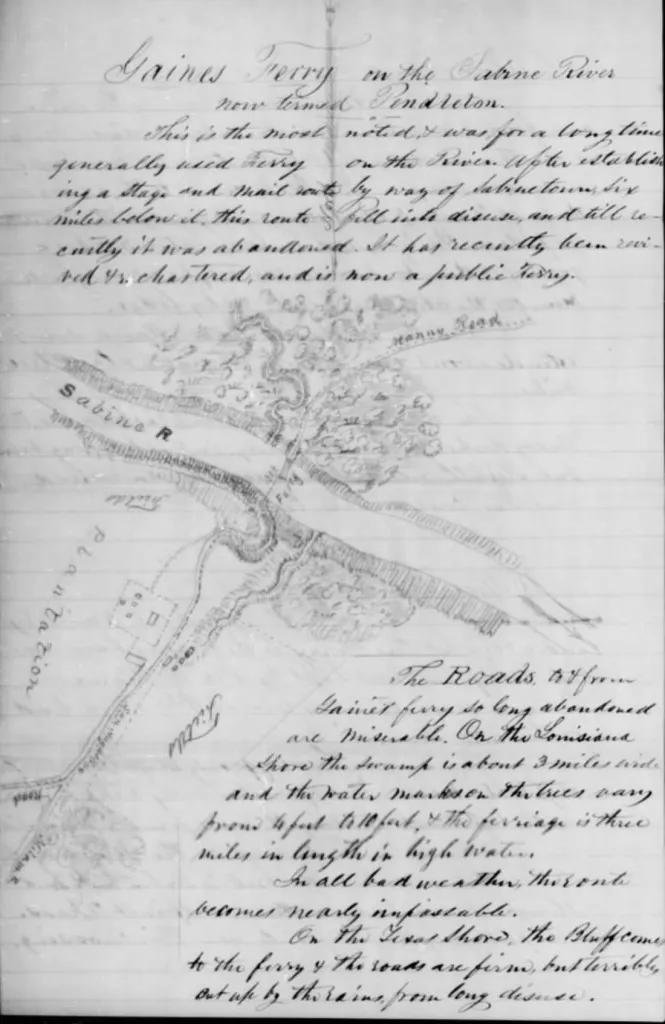 Gaines Ferry on the Sabine River
now termed Pendleton.
This is the most noted, & was for a long time
generally used Ferry on the River. After establish
ing a stage and mail route by way of Sabinetown, six
miles below it, this route fell into disuse, and till re-
cently it was abandoned. It has recently been revi-
ved & re chartered, and is now a public Ferry.
Many Road
Sabine R
Ferry
Fields
Plantation
Fields
Road
Milam
The Roads, to & from
Gaines ferry so long abandoned
are miserable. On the Louisiana
Shore the swamp is about 3 miles wide
and the water marks on the trees vary
from 4 feet to 10 feet, & the ferriage is three
miles in length in high water.
In all bad weather, the route
becomes nearly impassable.
On the Texas Shore, the Bluff comes
to the ferry & the roads are firm, but terribly
cut up by the rains, from long disuse.